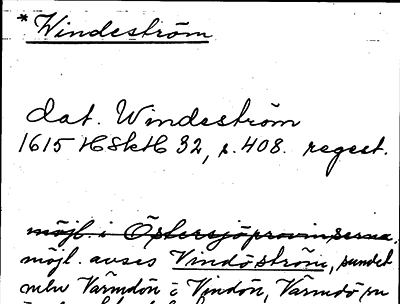 * Windeström
dat. Windeström
1615 HSkH 32, s. 408. regest.
möjl. i Östersjöprovinserna.
möjl. avses Vindöström, sundet
mln Värmdön o Vindön, Värmdö sn